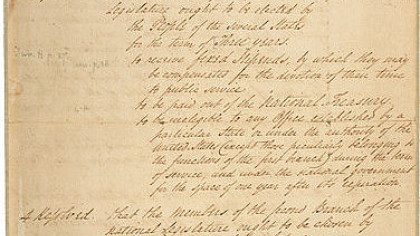 Legislature ought to be elected by
the People of the several States
for the term of Three years.
to receive fixed Stipends, by which they may
be compensated for the devotion of their time
to public service
to be paid out of the National-Treasury.
to be ineligible to any Office established by a
particular State or under the authority of the
united States (except those peculiarly belonging to
the functions of the first branch) during the term
of service, and under the national government
for the space of one year after its expiration.
4 Resolved. That the members of the second Branch of the
national Legislature ought to be chosen by